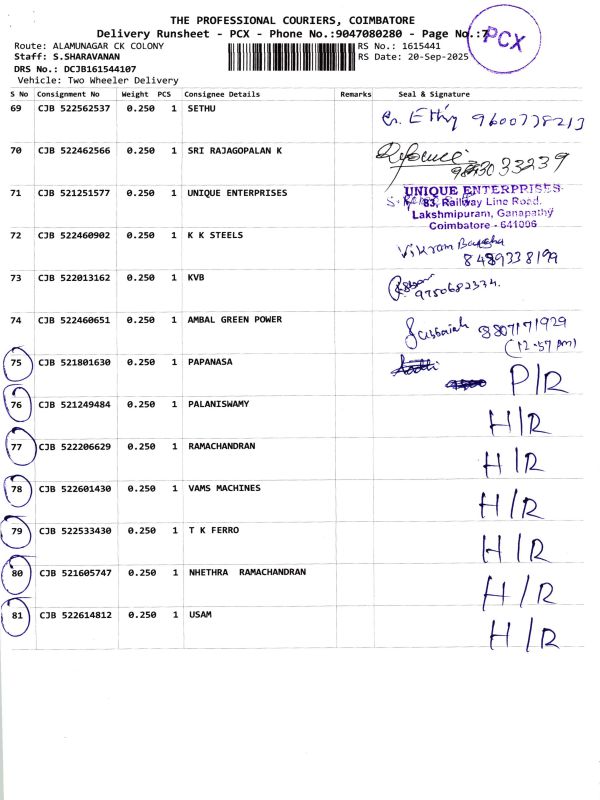 THE PROFESSIONAL COURIERS, COIMBATORE
Delivery Runsheet - PCX - Phone No.:9047080280 - Page No.:7
PCX
Route: ALAMUNAGAR CK COLONY RS No.: 1615441
Staff: S.SHARAVANAN RS Date: 20-Sep-2025
DRS No.: DCJB161544107
Vehicle: Two Wheeler Delivery
S No Consignment No Weight PCS Consignee Details Remarks Seal & Signature
69 CJB 522562537 0.250 1 SETHU
9600778213
70 CJB 522462566 0.250 1 SRI RAJAGOPALAN K
71 CJB 521251577 0.250 1 UNIQUE ENTERPRISES
UNIQUE ENTERPRISES
83, Railway Line Road,
Lakshmipuram, Ganapathy
Coimbatore - 641006
72 CJB 522460902 0.250 1 K K STEELS
Vikram
8489338199
73 CJB 522013162 0.250 1 KVB
9750682334.
74 CJB 522460651 0.250 1 AMBAL GREEN POWER
8807171929
(12.57 PM)
75 CJB 521801630 0.250 1 PAPANASA P/R
76 CJB 521249484 0.250 1 PALANISWAMY H/R
77 CJB 522206629 0.250 1 RAMACHANDRAN H/R
78 CJB 522601430 0.250 1 VAMS MACHINES H/R
79 CJB 522533430 0.250 1 T K FERRO H/R
80 CJB 521605747 0.250 1 NHETHRA RAMACHANDRAN H/R
81 CJB 522614812 0.250 1 USAM H/R